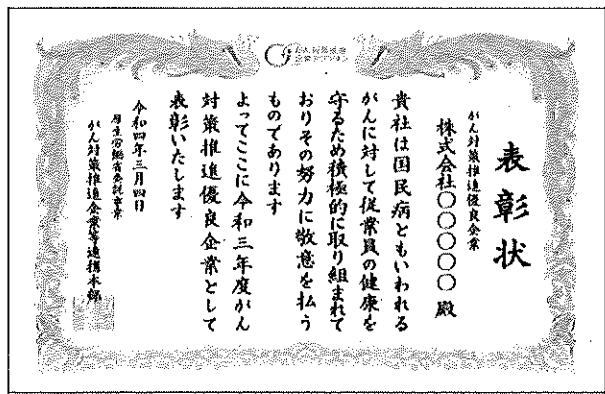 表彰状
がん対策推進優良企業
株式会社○○○○○ 殿
貴社は国民病ともいわれる
がんに対して従業員の健康を
守るため積極的に取り組まれて
おりその努力に敬意を払う
ものであります
よってここに令和三年度がん
対策推進優良企業として
表彰いたします
令和四年三月四日
厚生労働省委託事業
がん対策推進企業等連携本部